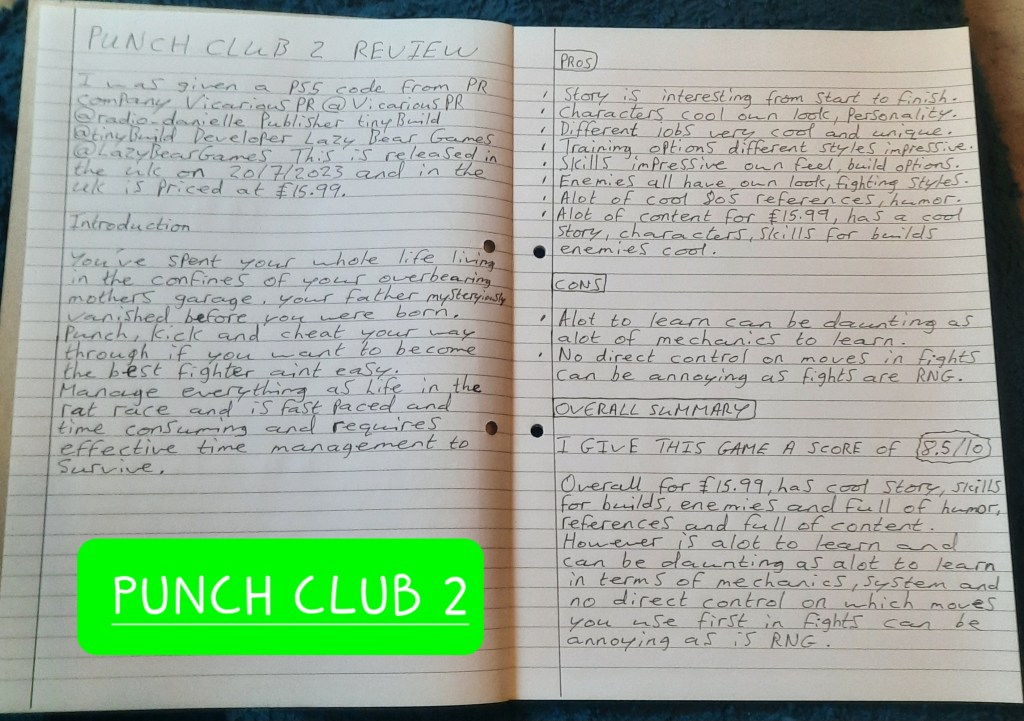 PUNCH CLUB 2 REVIEW
I was given a PS5 code from PR
Company Vicarious PR @VicariousPR
@radio-danielle Publisher tinyBuild
@tinyBuild Developer Lazy Bear Games
@LazyBearGames This is released in
the uk on 20/7/2023 and in the
uk is Priced at £15.99.
Introduction
You've spent your whole life living
in the confines of your overbearing
mothers garage, your father mysteryiously
vanished before you were born.
Punch, kick and cheat your way
through if you want to become
the best fighter aint easy.
Manage everything as life in the
rat race and is fast paced and
time consuming and requires
effective time management to
Survive.
PUNCH CLUB 2
PROS
' Story is interesting from start to finish.
' Characters cool own look, Personality.
' Different jobs very cool and unique.
' Training options different styles inpressive.
' Skills impressive own feel, build options.
' Enemies all have own look, fighting styles.
' Alot of cool 80s references, humor.
' Alot of content for £15.99, has a cool
story, characters, skills for builds
enemies cool.
CONS
' Alot to learn can be daunting as
alot of mechanics to learn.
' No direct control on moves in fights
can be annoying as fights are RNG.
OVERALL SUMMARY
I GIVE THIS GAME A SCORE OF 8.5/10
Overall for £15.99, has cool story, skills
for builds, enemies and full of humor,
references and full of content.
However is alot to learn and
can be daunting as alot to learn
in terms of mechanics, system and
no direct control on which moves
you use first in fights can be
annoying as is RNG.